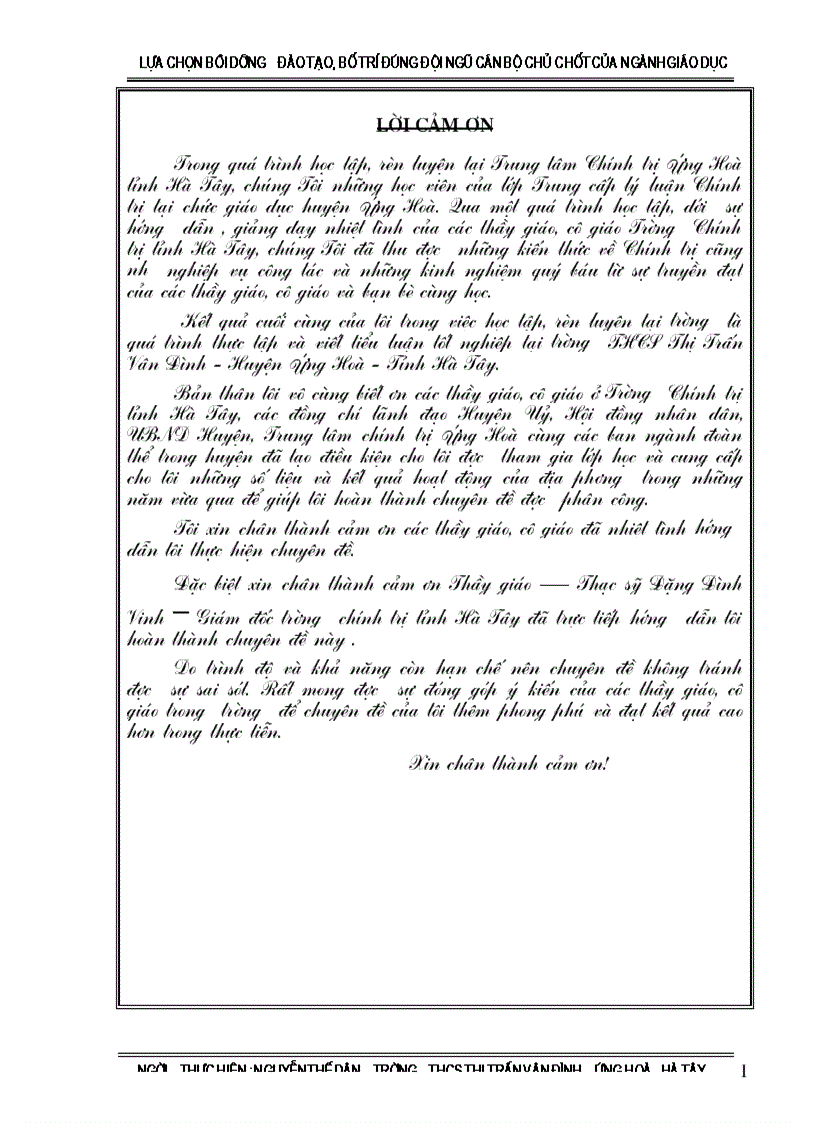 LỰA CHỌN BỒI DỠNG ĐÀO TẠO, BỐ TRÍ ĐÚNG ĐỘI NGŨ CÁN BỘ CHỦ CHỐT CỦA NGÀNH GIÁO DỤC
LỜI CẢM ƠN
Trong quá trình học tập, rèn luyện tại Trung tâm Chính trị Ứng Hoà
tỉnh Hà Tây, chúng Tôi những học viên của lớp Trung cấp lý luận Chính
trị tại chức giáo dục huyện Ứng Hoà. Qua một quá trình học tập, dới sự
hớng dẫn , giảng dạy nhiệt tình của các thầy giáo, cô giáo Trờng Chính
trị tỉnh Hà Tây, chúng Tôi đã thu đợc những kiến thức về Chính trị cũng
nh nghiệp vụ công tác và những kinh nghiệm quý báu từ sự truyền đạt
của các thầy giáo, cô giáo và bạn bè cùng học.
Kết quả cuối cùng của tôi trong viêc học tập, rèn luyện tại trờng là
quá trình thực tập và viết tiểu luận tốt nghiệp tại trờng THCS Thị Trấn
Vân Đình - Huyện Ứng Hoà - Tỉnh Hà Tây.
Bản thân tôi vô cùng biết ơn các thầy giáo, cô giáo ở Trờng Chính trị
tỉnh Hà Tây, các đồng chí lãnh đạo Huyện Uỷ, Hội đồng nhân dân,
UBND Huyện, Trung tâm chính trị Ứng Hoà cùng các ban ngành đoàn
thể trong huyện đã tạo điều kiện cho tôi đợc tham gia lớp học và cung cấp
cho tôi những số liệu và kết quả hoạt động của địa phơng trong những
năm vừa qua để giúp tôi hoàn thành chuyên đề đợc phân công.
Tôi xin chân thành cảm ơn các thầy giáo, cô giáo đã nhiêt tình hớng
dẫn tôi thực hiện chuyên đề.
Đặc biệt xin chân thành cảm ơn Thầy giáo — Thạc sỹ Đặng Đình
Vinh – Giám đốc trờng chính trị tỉnh Hà Tây đã trực tiếp hớng dẫn tôi
hoàn thành chuyên đề này .
Do trình độ và khả năng còn hạn chế nên chuyên đề không tránh
đợc sự sai sót. Rất mong đợc sự đóng góp ý kiến của các thầy giáo, cô
giáo trong trờng để chuyên đề của tôi thêm phong phú và đạt kết quả cao
hơn trong thực tiễn.
Xin chân thành cảm ơn!
NGỜI THỰC HIỆN : NGUYỄN THẾ DÂN TRỜNG THCS THỊ TRẤN VÂN ĐÌNH ỨNG HOÀ HÀ TÂY 1